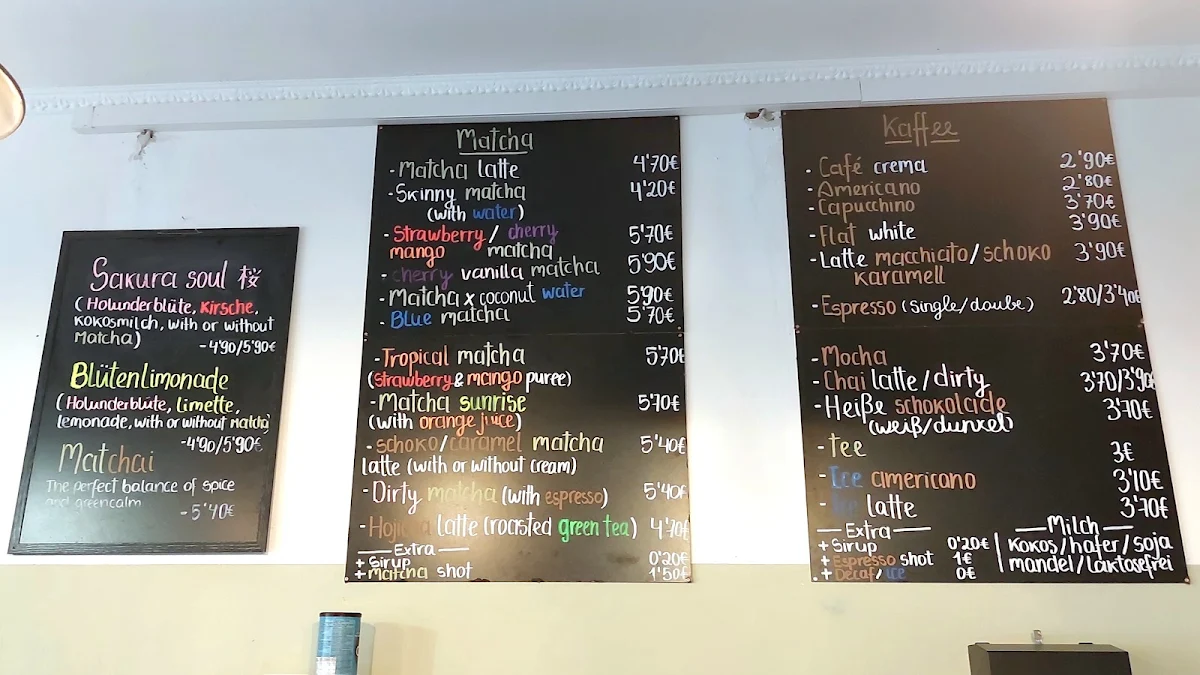 Sakura soul 桜
(Holunderblüte, Kirsche,
Kokosmilch, with or without
Matcha) -4'90/5'90€
Blütenlimonade
(Holunderblüte, Limette,
lemonade, with or without Matcha)
-4'90/5'90€
Matchai
The perfect balance of spice
and greencalm
-5'40€
Matcha
-Matcha latte 4'70€
-Skinny matcha 4'20€
(with water)
-Strawberry/ cherry 5'70€
mango matcha
-cherry vanilla matcha 5'90€
-Matcha x coconut water 5'90€
-Blue matcha 5'70€
-Tropical matcha 5'70€
(Strawberry & mango puree)
-Matcha sunrise 5'70€
(with orange juice)
-schoko/caramel matcha 5'40€
latte (with or without cream)
-Dirty matcha (with espresso) 5'40€
-Hojicha latte (roasted green tea) 4'70€
Extra
+Sirup 0'20€
+Matcha shot 1'50€
Kaffee
-Café crema 2'90€
-Americano 2'80€
-Capucchino 3'70€
-Flat white 3'90€
-Latte macchiato/schoko 3'90€
karamell
-Espresso (single/double) 2'80/3'40€
-Mocha 3'70€
-Chai latte/dirty 3'70/3'90€
-Heiße schokolade 3'70€
(weiß/dunkel)
-Tee 3€
-Ice americano 3'10€
-Ice latte 3'70€
Extra
+Sirup 0'20€
+Espresso shot 1€
+Decaf/ice 0€
Milch
Kokos/hafer/soja
mandel/Laktosefrei